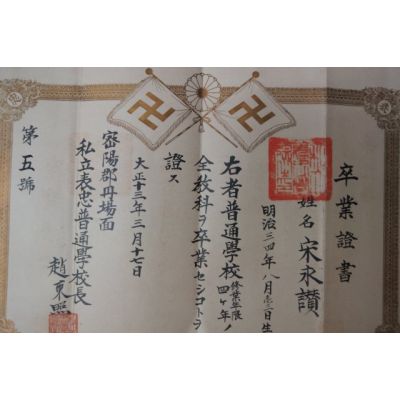 卒業證書
姓名 宋永讃
明治三四年八月壱三日生
右者普通學校修業年限四ヶ年ノ
全敎科ヲ卒業セシコトヲ
證ス
大正十三年三月十七日
密陽郡丹場面
私立表忠普通學校長
趙東熙
第五號